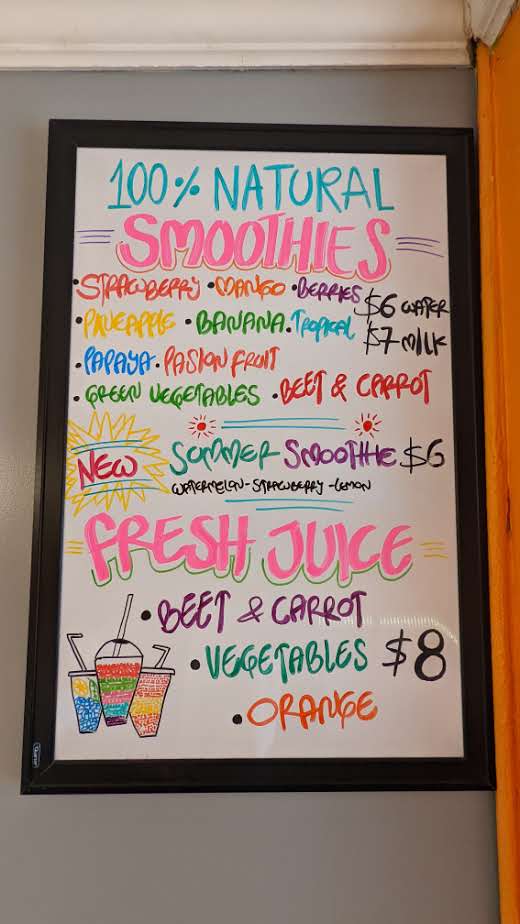 100% NATURAL
SMOOTHIES
•STRAWBERRY •MANGO •BERRIES $6 WATER
•PINEAPPLE •BANANA •TROPICAL $7 MILK
•PAPAYA •PASION FRUIT
•GREEN VEGETABLES •BEET & CARROT
NEW SUMMER SMOOTHIE $6
WATERMELON-STRAWBERRY-LEMON
FRESH JUICE
•BEET & CARROT
•VEGETABLES $8
•ORANGE